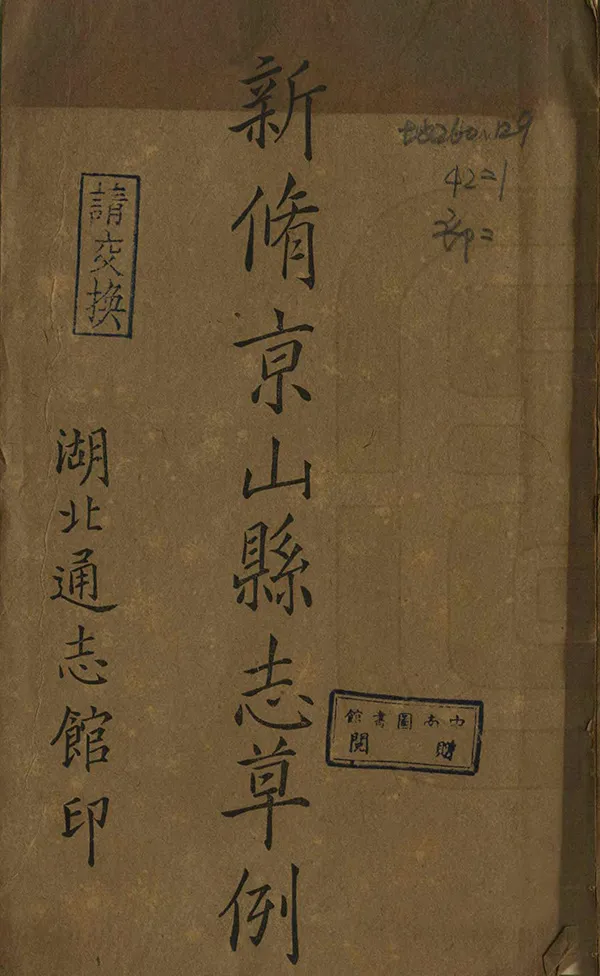 新脩京山縣志草例
湖北通志館印
請交換
地260.129
42=1
館書圖央中
閱贈